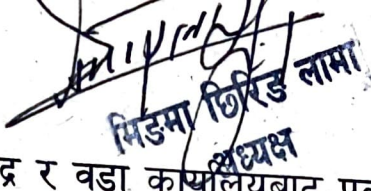 मिङमा छिरिङ लामा
अध्यक्ष
द्र र वडा कार्यालयबाट